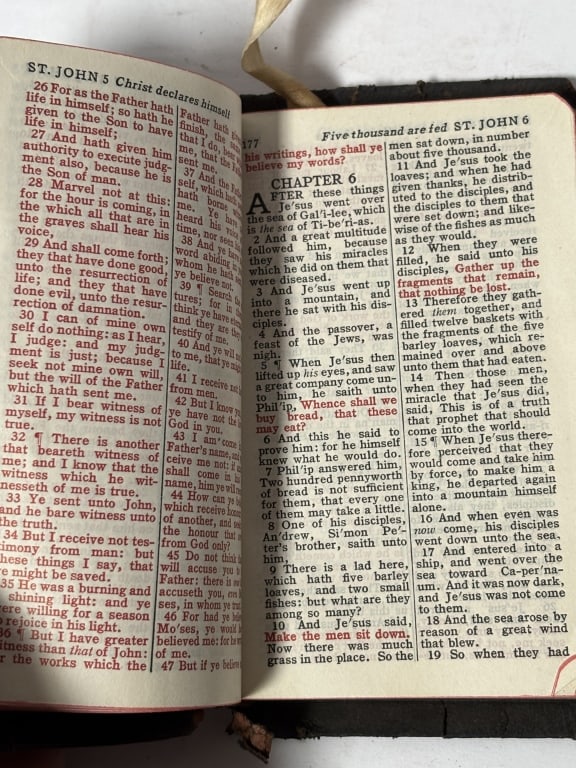 ST. JOHN 5 Christ declares himself
26 For as the Father hath
life in himself; so hath he
given to the Son to have
life in himself;
27 And hath given him
authority to execute judg-
ment also, because he is
the Son of man.
28 Marvel not at this:
for the hour is coming, in
the which all that are in
the graves shall hear his
voice,
29 And shall come forth;
they that have done good,
unto the resurrection of
life; and they that have
done evil, unto the resur-
rection of damnation.
30 I can of mine own
self do nothing: as I hear,
I judge: and my judg-
ment is just; because I
seek not mine own will,
but the will of the Father
which hath sent me.
31 If I bear witness of
myself, my witness is not
true.
32 ¶ There is another
that beareth witness of
me; and I know that the
witness which he wit-
nesseth of me is true.
33 Ye sent unto John,
and he bare witness unto
the truth.
34 But I receive not tes-
timony from man: but
these things I say, that
might be saved.
35 He was a burning and
shining light: and ye
were willing for a season
to rejoice in his light.
36 ¶ But I have greater
witness than that of John:
for the works which the
Father hath
finish, the
that I do, bear
me, that the
sent me.
37 And the
self, which hath
hath borne
me. Ye
heard his voice
time, nor seen
38 And ye have
word abiding in
whom he has
ye believe not.
39 ¶ Search
tures; for in
think ye have
and they are they
testify of me.
40 And ye will
to me, that ye might
life.
41 I receive not
from men.
42 But I know
ye have not the
God in you.
43 I am come
Father's name, and
ceive me not: if
shall come in
name, him ye will
44 How can ye
which receive honour
of another, and seek
the honour that
from God only?
45 Do not think
will accuse you
Father: there is one
accuseth you, even
ses, in whom ye trust
46 For had ye
Mo'ses, ye would
believed me: for he
of me.
47 But if ye believe
177
Five thousand are fed ST. JOHN 6
his writings, how shall ye
believe my words?
CHAPTER 6
AFTER these things
Je'sus went over
the sea of Gal'i-lee, which
is the sea of Ti-be'ri-as.
2 And a great multitude
followed him, because
they saw his miracles
which he did on them that
were diseased.
3 And Je'sus went up
into a mountain, and
there he sat with his dis-
ciples.
4 And the passover, a
feast of the Jews, was
nigh.
5 ¶ When Je'sus then
lifted up his eyes, and saw
a great company come un-
to him, he saith unto
Phil'ip, Whence shall we
buy bread, that these
may eat?
6 And this he said to
prove him: for he himself
knew what he would do.
7 Phil'ip answered him,
Two hundred pennyworth
of bread is not sufficient
for them, that every one
of them may take a little.
8 One of his disciples,
An'drew, Si'mon Pe'-
ter's brother, saith unto
him,
9 There is a lad here,
which hath five barley
loaves, and two small
fishes: but what are they
among so many?
10 And Je'sus said,
Make the men sit down.
Now there was much
grass in the place. So the
men sat down, in number
about five thousand.
11 And Je'sus took the
loaves; and when he had
given thanks, he distrib-
uted to the disciples, and
the disciples to them that
were set down; and like-
wise of the fishes as much
as they would.
12 When they were
filled, he said unto his
disciples, Gather up the
fragments that remain,
that nothing be lost.
13 Therefore they gath-
ered them together, and
filled twelve baskets with
the fragments of the five
barley loaves, which re-
mained over and above
unto them that had eaten.
14 Then those men,
when they had seen the
miracle that Je'sus did,
said, This is of a truth
that prophet that should
come into the world.
15 ¶ When Je'sus there-
fore perceived that they
would come and take him
by force, to make him a
king, he departed again
into a mountain himself
alone.
16 And when even was
now come, his disciples
went down unto the sea.
17 And entered into a
ship, and went over the
sea toward Ca-per'na-
um. And it was now dark,
and Je'sus was not come
to them.
18 And the sea arose by
reason of a great wind
that blew.
19 So when they had